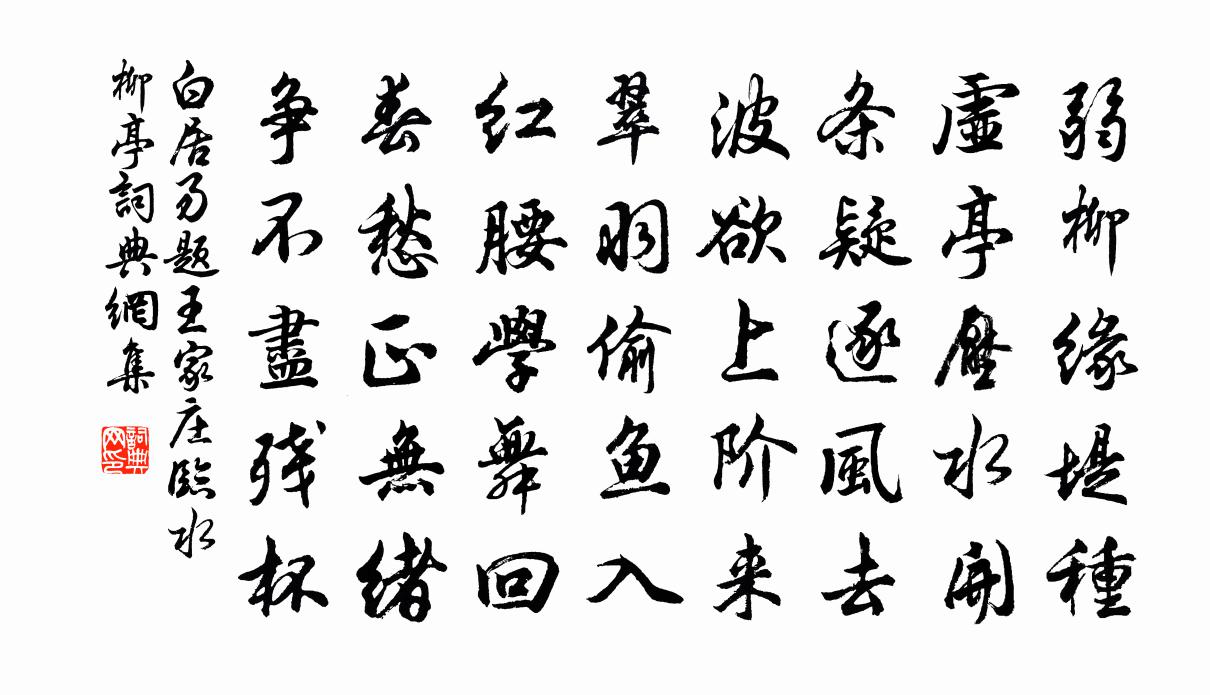 弱柳缘堤種
虛亭壓水開
条疑逐風去
波欲上阶来
翠羽偷鱼入
红腰學舞回
春愁正無緒
争不盡残杯
白居易题王家庄臨水
柳亭詞典網集
詞典网印